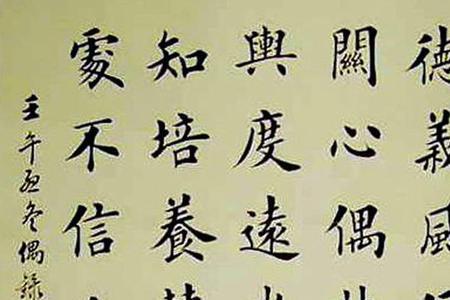 德義風
關心偶
與度遠
知培養
處不信
壬午孟冬偶錄